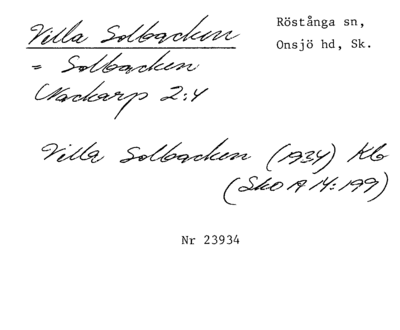 Villa Solbacken
Röstånga sn,
Onsjö hd, Sk.
= Solbacken
Nackarp 2:4
Villa Solbacken (1934) Kb
(Sko A 14:199)
Nr 23934